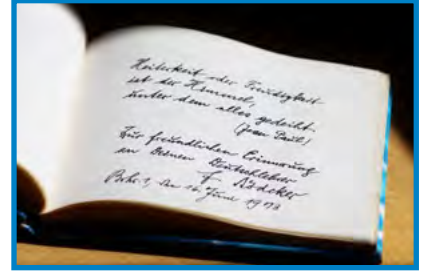 Heiterkeit oder Freudigkeit
ist der Himmel,
unter dem alles gedeiht.
(Jean Paul)
Zur freundlichen Erinnerung
an Deinen Deutschlehrer
den 16. Juni 1978